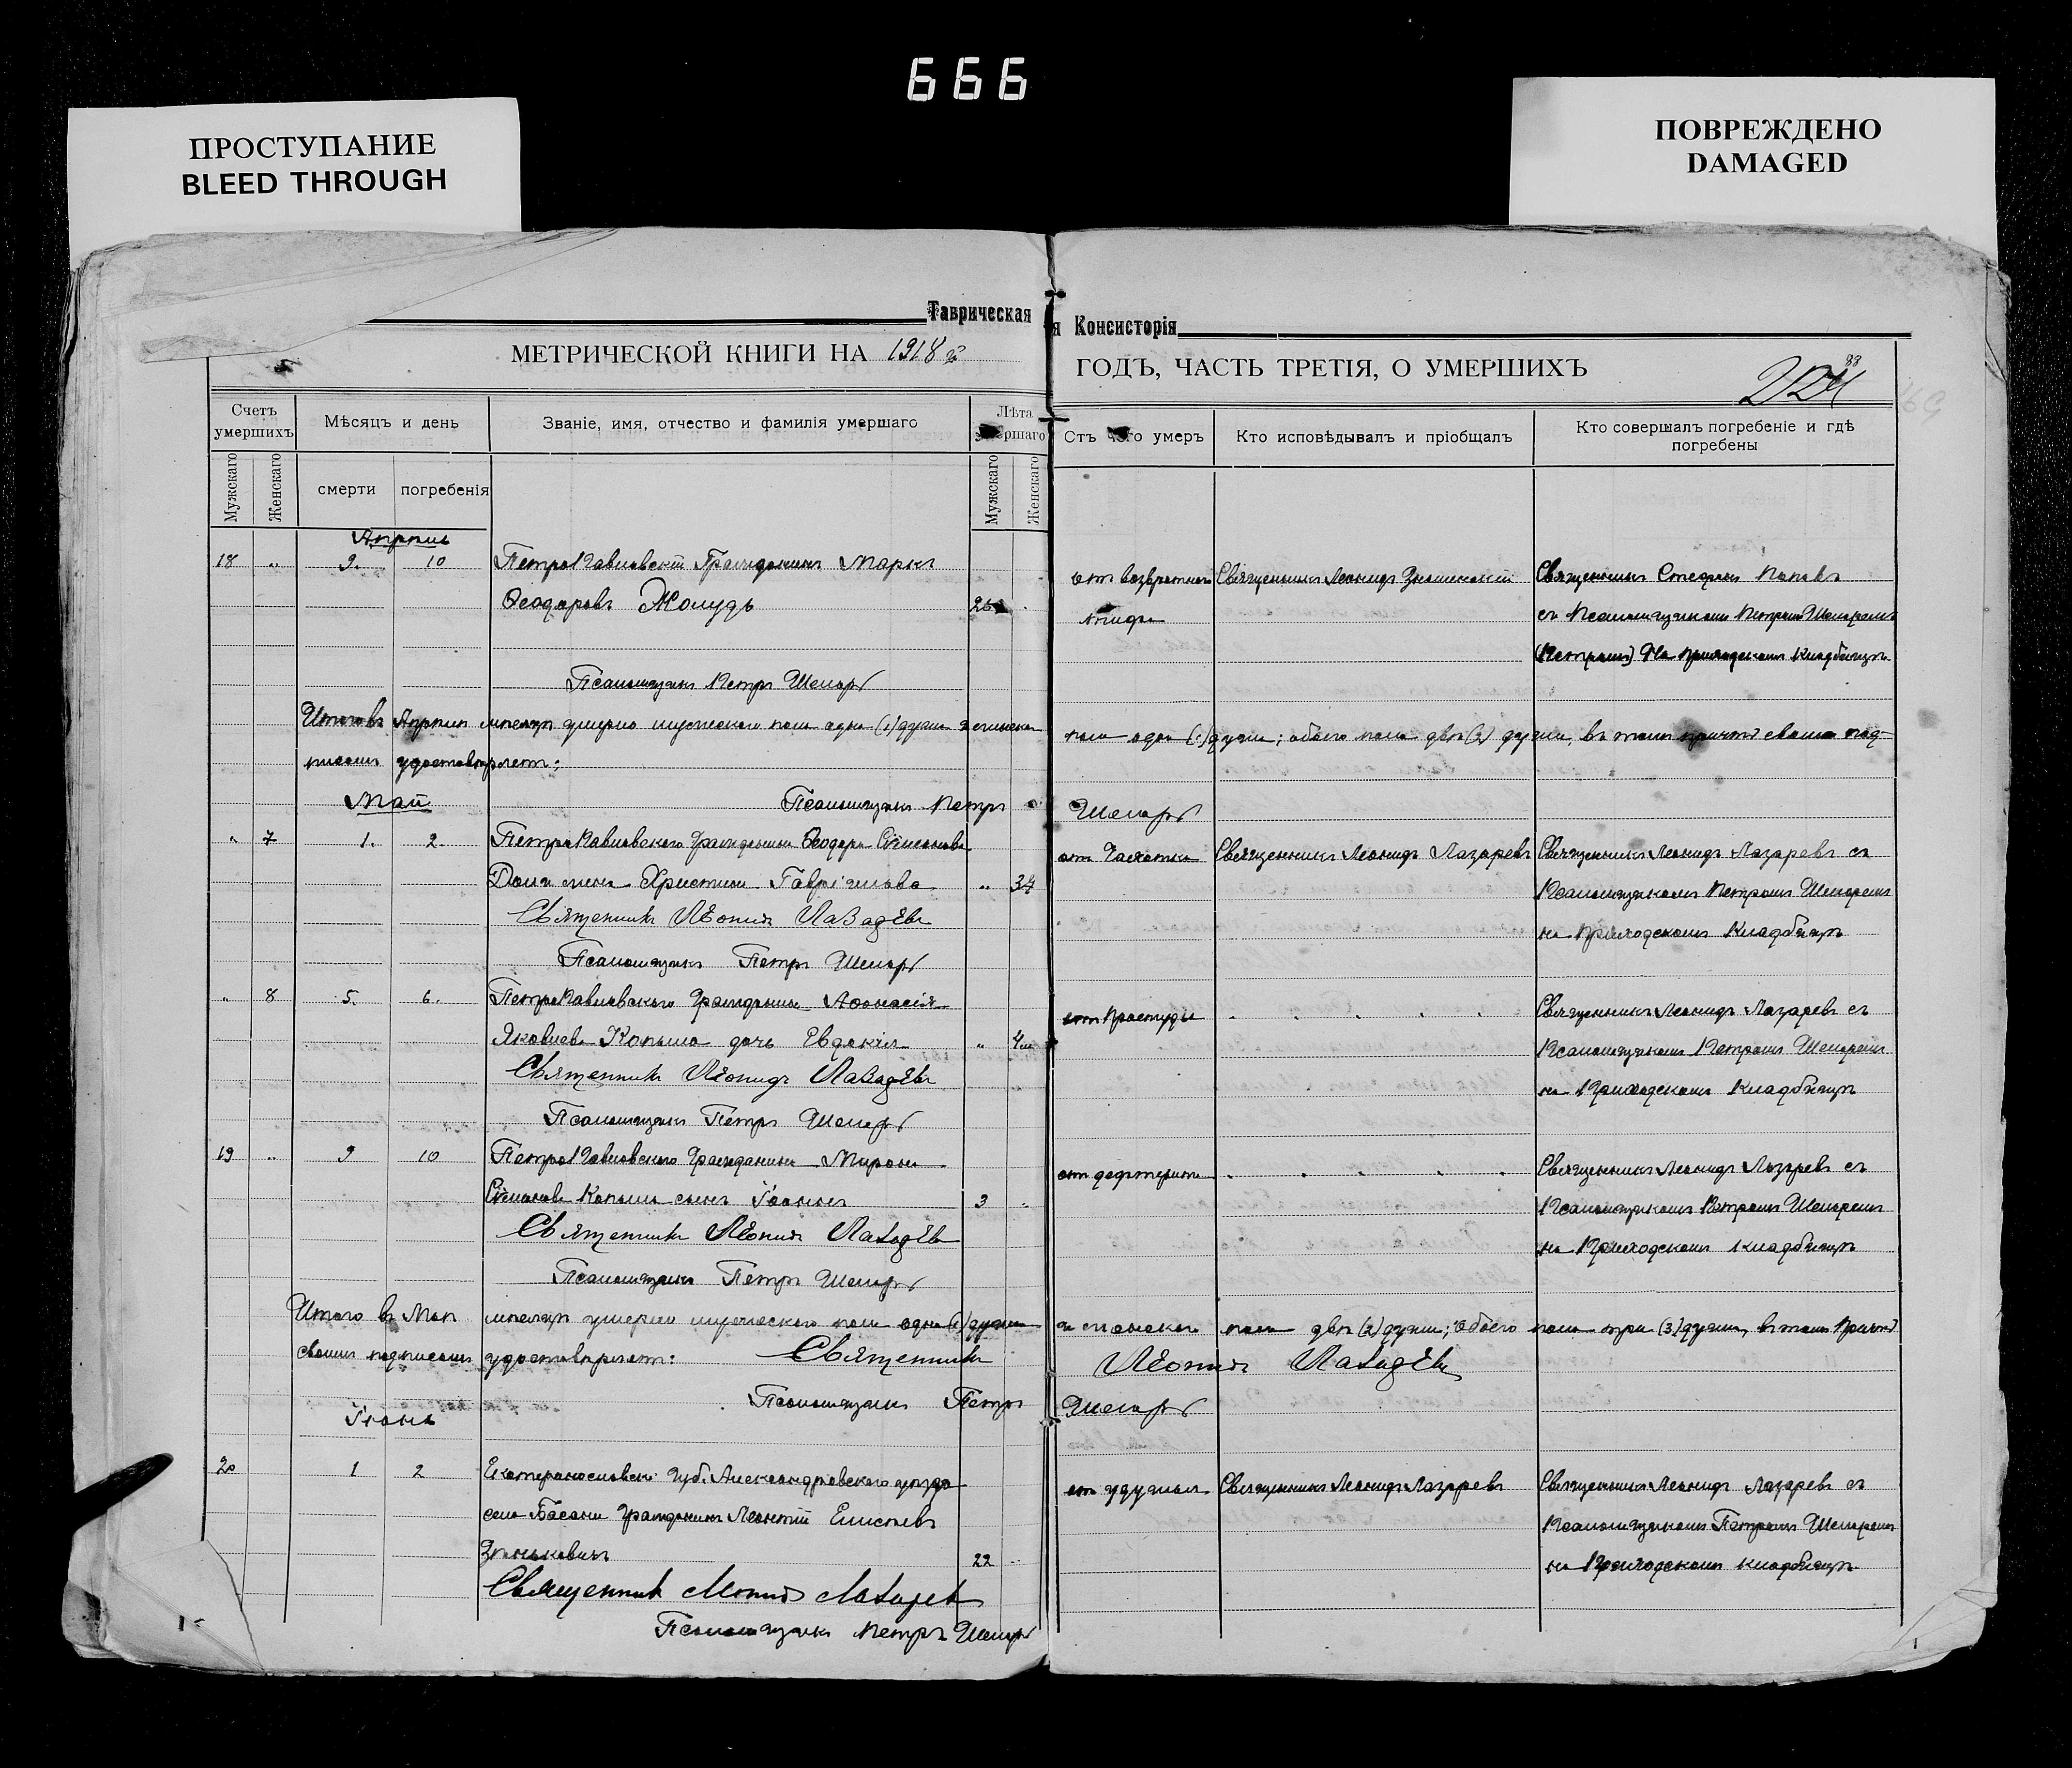 666
ПРОСТУПАНИЕ
BLEED THROUGH
ПОВРЕЖДЕНО
DAMAGED
Таврическая
я Консисторія
МЕТРИЧЕСКОЙ КНИГИ НА 1918 й
ГОДЪ, ЧАСТЬ ТРЕТІЯ, О УМЕРШИХЪ
Счетъ умершихъ
Мѣсяцъ и день
Званіе, имя, отчество и фамилія умершаго
Лѣта
Мужскаго
Женскаго
смерти
погребенія
Мужскаго
Женскаго
Отъ чего умеръ
Кто исповѣдывалъ и пріобщалъ
Кто совершалъ погребеніе и гдѣ погребены
Апрѣль
18 " 9. 10 ПетроПавловскій Гражданинъ Маркъ
Ѳеодоровъ Жолудь 26
отъ возвратнаго Священникъ Леонидъ Знаменскій Священникъ Стефанъ Поповъ
тифа съ Псаломщикомъ Петромъ Шеларемъ
(Петромъ) На приходскомъ кладбищѣ
Псаломщикъ Петръ Шеларь
Итого въ Апрѣлѣ мѣсяцѣ умерло мужескаго пола одна (1) душа женска
пола одна (1) душа; обоего пола двѣ (2) души, въ томъ причтъ своимъ под-
писомъ удостовѣряетъ:
Май
Псаломщикъ Петръ Шеларь
" 7 1. 2. ПетроПавловскаго Гражданина Ѳеодора Сѵмеонова
жена Христина Гавріилова " 34
отъ Чахотки Священникъ Леонидъ Лазаревъ Священникъ Леонидъ Лазаревъ съ
Псаломщикомъ Петромъ Шеларемъ
на Приходскомъ Кладбищѣ
Священникъ Леонидъ Лазаревъ
Псаломщикъ Петръ Шеларь
" 8 5. 6. ПетроПавловскаго Гражданина Аѳанасія
Яковлева Копыла дочь Евдокія " 4 м
отъ Простуды Священникъ Леонидъ Лазаревъ съ
Псаломщикомъ Петромъ Шеларемъ
на Приходскомъ Кладбищѣ
Священникъ Леонидъ Лазаревъ
Псаломщикъ Петръ Шеларь
19 " 9 10 ПетроПавловскаго Гражданина Мирона
Сѵмеонова Копыла сынъ Іоаннъ 3
отъ дефтерита Священникъ Леонидъ Лазаревъ съ
Псаломщикомъ Петромъ Шеларемъ
на Приходскомъ кладбищѣ
Священникъ Леонидъ Лазаревъ
Псаломщикъ Петръ Шеларь
Итого въ Маѣ мѣсяцѣ умерло мужескаго пола одна (1) душа
женскаго пола двѣ (2) души; обоего пола три (3) души, въ томъ Причтъ
своимъ подписомъ удостовѣряетъ: Священникъ Леонидъ Лазаревъ
Псаломщикъ Петръ Шеларь
Іюнь
20 1 2 Екатеринославск. губ. Александровскаго уѣзда
село Басани Гражданинъ Леонтій Елисѣевъ
22
отъ удушья Священникъ Леонидъ Лазаревъ Священникъ Леонидъ Лазаревъ съ
Псаломщикомъ Петромъ Шеларемъ
на Приходскомъ кладбищѣ
Священникъ Леонидъ Лазаревъ
Псаломщикъ Петръ Шеларь